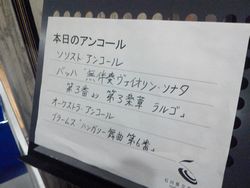 本日のアンコール
ソリスト アンコール
バッハ「無伴奏ヴァイオリン・ソナタ
第3番」より 第3楽章 ラルゴ
オーケストラ・アンコール
ブラームス「ハンガリー舞曲 第6番」